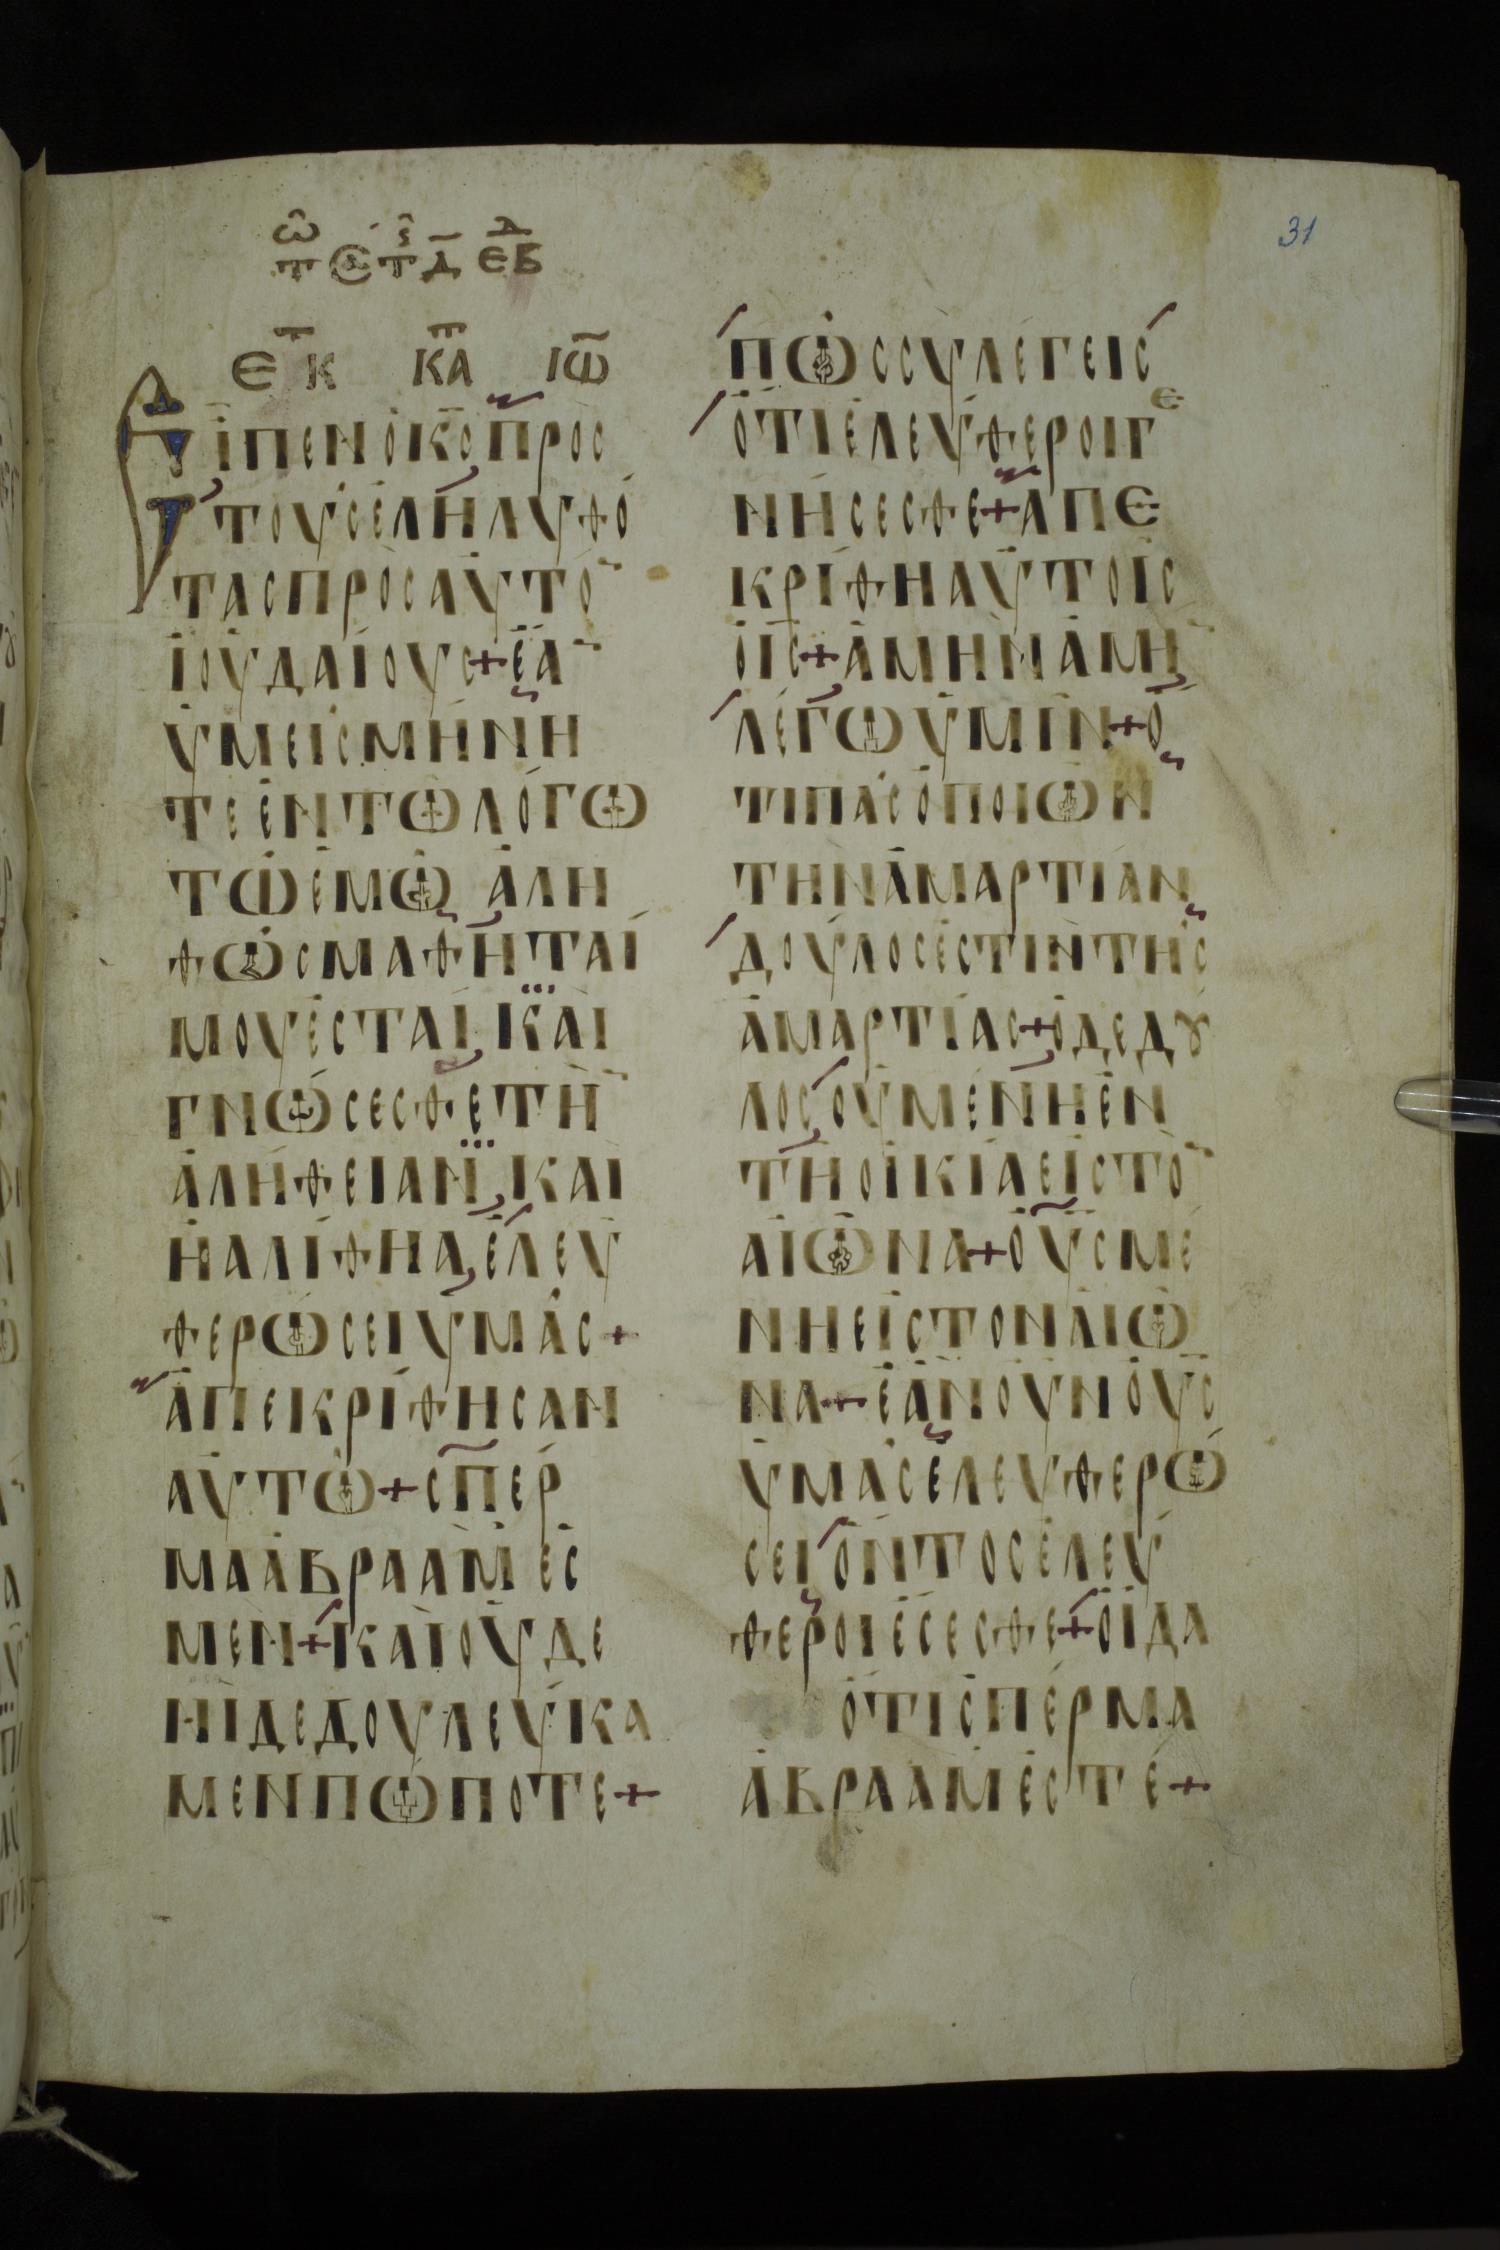 31
ΕΚ ΚΑ ΙΩ
ΕΙΠΕΝ Ο ΚC ΠΡΟC
ΤΟΥC ΕΛΗΛΥΘΟ
ΤΑC ΠΡΟC ΑΥΤΟ̄
ΙΟΥΔΑΙΟΥC + ΕᾹ
ΥΜΕΙC ΜΗΝΗ
ΤΕ ΕΝ ΤΩ ΛΟΓΩ
ΤΩ ΕΜΩ ΑΛΗ
ΘΩC ΜΑΘΗΤΑΙ
ΜΟΥ ΕCΤΑΙ ΚΑΙ
ΓΝΩCΕCΘΕ ΤΗ̄
ΑΛΗΘΕΙΑΝ ΚΑΙ
Η ΑΛΙΘΗΑ ΕΛΕΥ
ΘΕΡΩCΕΙ ΥΜΑC +
ΑΠΕΚΡΙΘΗCΑΝ
ΑΥΤΩ + CΠΕΡ
ΜΑ ΑΒΡΑΑΜ ΕC
ΜΕΝ + ΚΑΙ ΟΥΔΕ
ΝΙ ΔΕΔΟΥΛΕΥΚΑ
ΜΕΝ ΠΩΠΟΤΕ +
ΠΩC CΥ ΛΕΓΕΙC
ΟΤΙ ΕΛΕΥΘΕΡΟΙ ΓΕ
ΝΗCΕCΘΕ + ΑΠΕ
ΚΡΙΘΗ ΑΥΤΟΙC
Ο ΙC + ΑΜΗΝ ΑΜΗ̄
ΛΕΓΩ ΥΜΙΝ + Ο
ΤΙ ΠΑC Ο ΠΟΙΩΝ
ΤΗΝ ΑΜΑΡΤΙΑΝ
ΔΟΥΛΟC ΕCΤΙΝ ΤΗC
ΑΜΑΡΤΙΑC + Ο ΔΕ ΔȢ
ΛΟC ΟΥ ΜΕΝΗ ΕΝ
ΤΗ ΟΙΚΙΑ ΕΙC ΤΟ̄
ΑΙΩΝΑ + Ο ΥC ΜΕ
ΝΗ ΕΙC ΤΟΝ ΑΙΩ
ΝΑ + ΕΑΝ ΟΥΝ Ο ΥC
ΥΜΑC ΕΛΕΥΘΕΡΩ
CΕΙ ΟΝΤΟC ΕΛΕΥ
ΘΕΡΟΙ ΕCΕCΘΕ + ΟΙΔΑ
ΟΤΙ CΠΕΡΜΑ
ΑΒΡΑΑΜ ΕCΤΕ +